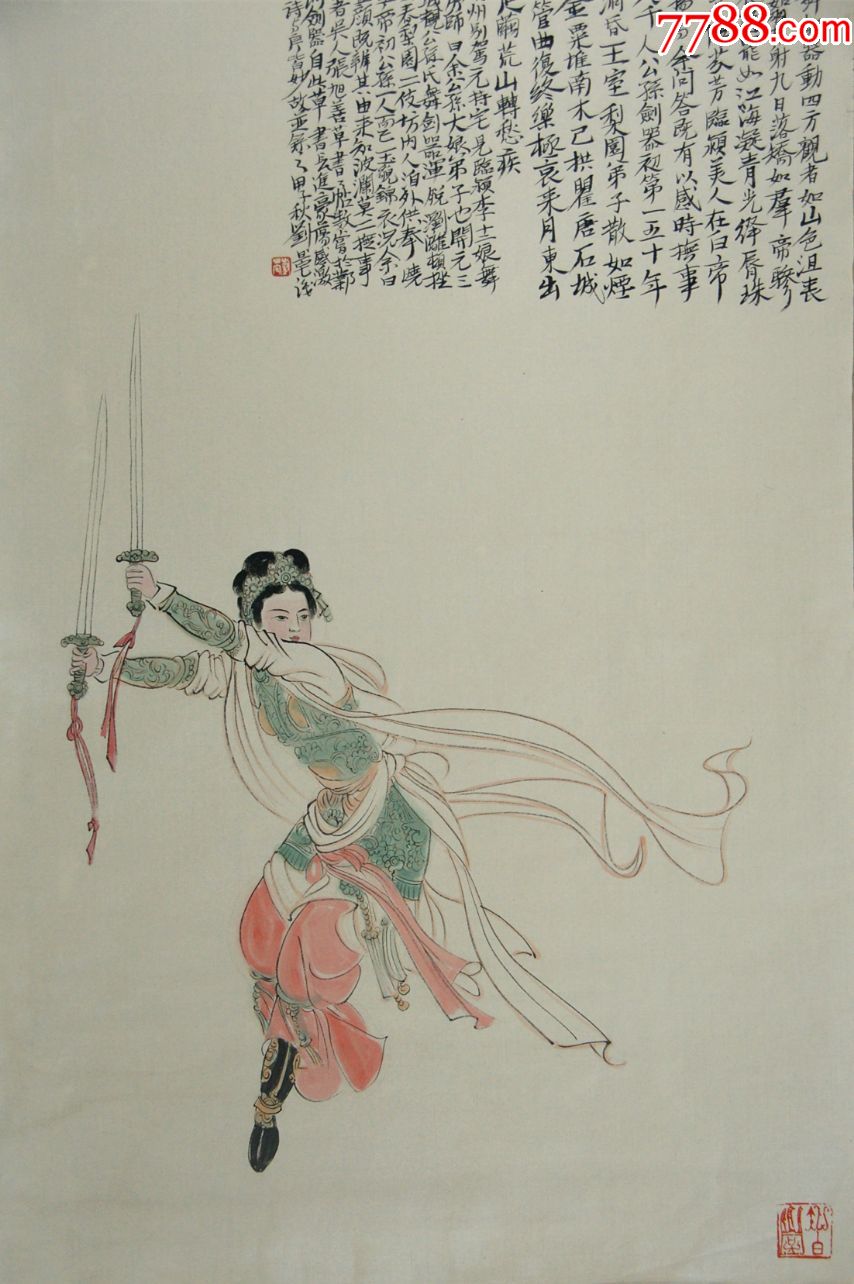 7788.com
器動四方觀者如山色沮喪
如羿射九日落矯如羣帝驂
能如江海凝青光絳脣珠
傳芬芳臨潁美人在白帝
余問答既有以感時撫事
千人公孫劍器初第一五十年
洞昏王室梨園弟子散如煙
金粟堆南木已拱瞿唐石城
管曲復終樂極哀來月東出
足繭荒山轉愁疾
州別駕元持宅見臨潁李十二娘舞
所師曰余公孫大娘弟子也開元三
城觀公孫氏舞劍器渾脫瀏灕頓挫
春梨園二伎坊內人洎外供奉曉
帝初公孫一人而已玉貌錦衣況余白
顏既辨其由來知波瀾莫二撫事
者吳人張旭善草書書帖數嘗於鄴
劍器自此草書長進豪蕩感激
詩序皆妙故並錄之甲子秋劉